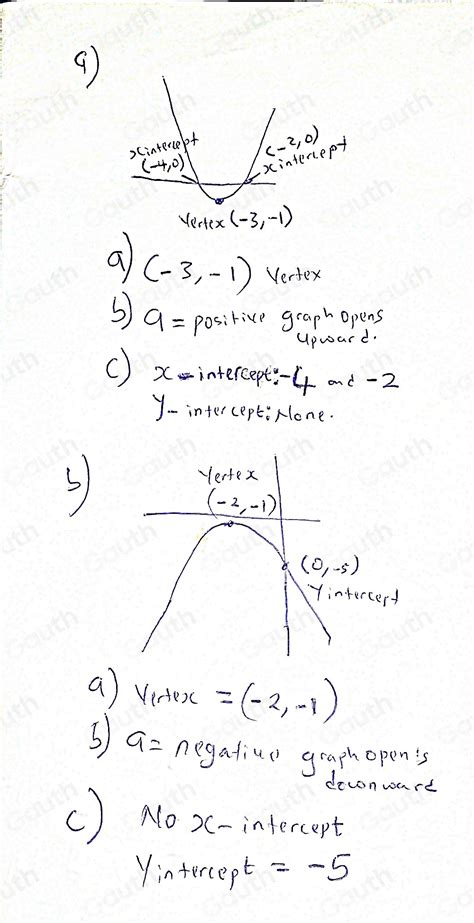 a)
x intercept
(-4,0)
(-2,0)
x intercept
Vertex (-3,-1)
a) (-3,-1) Vertex
b) a = positive graph opens
upward.
c) x-intercept: -4 and -2
y-intercept: None.
b)
Vertex
(-2,-1)
(0,-5)
Y intercept
a) Vertex = (-2,-1)
b) a = negative graph opens
downward
c) No x-intercept
Y intercept = -5
Gauth